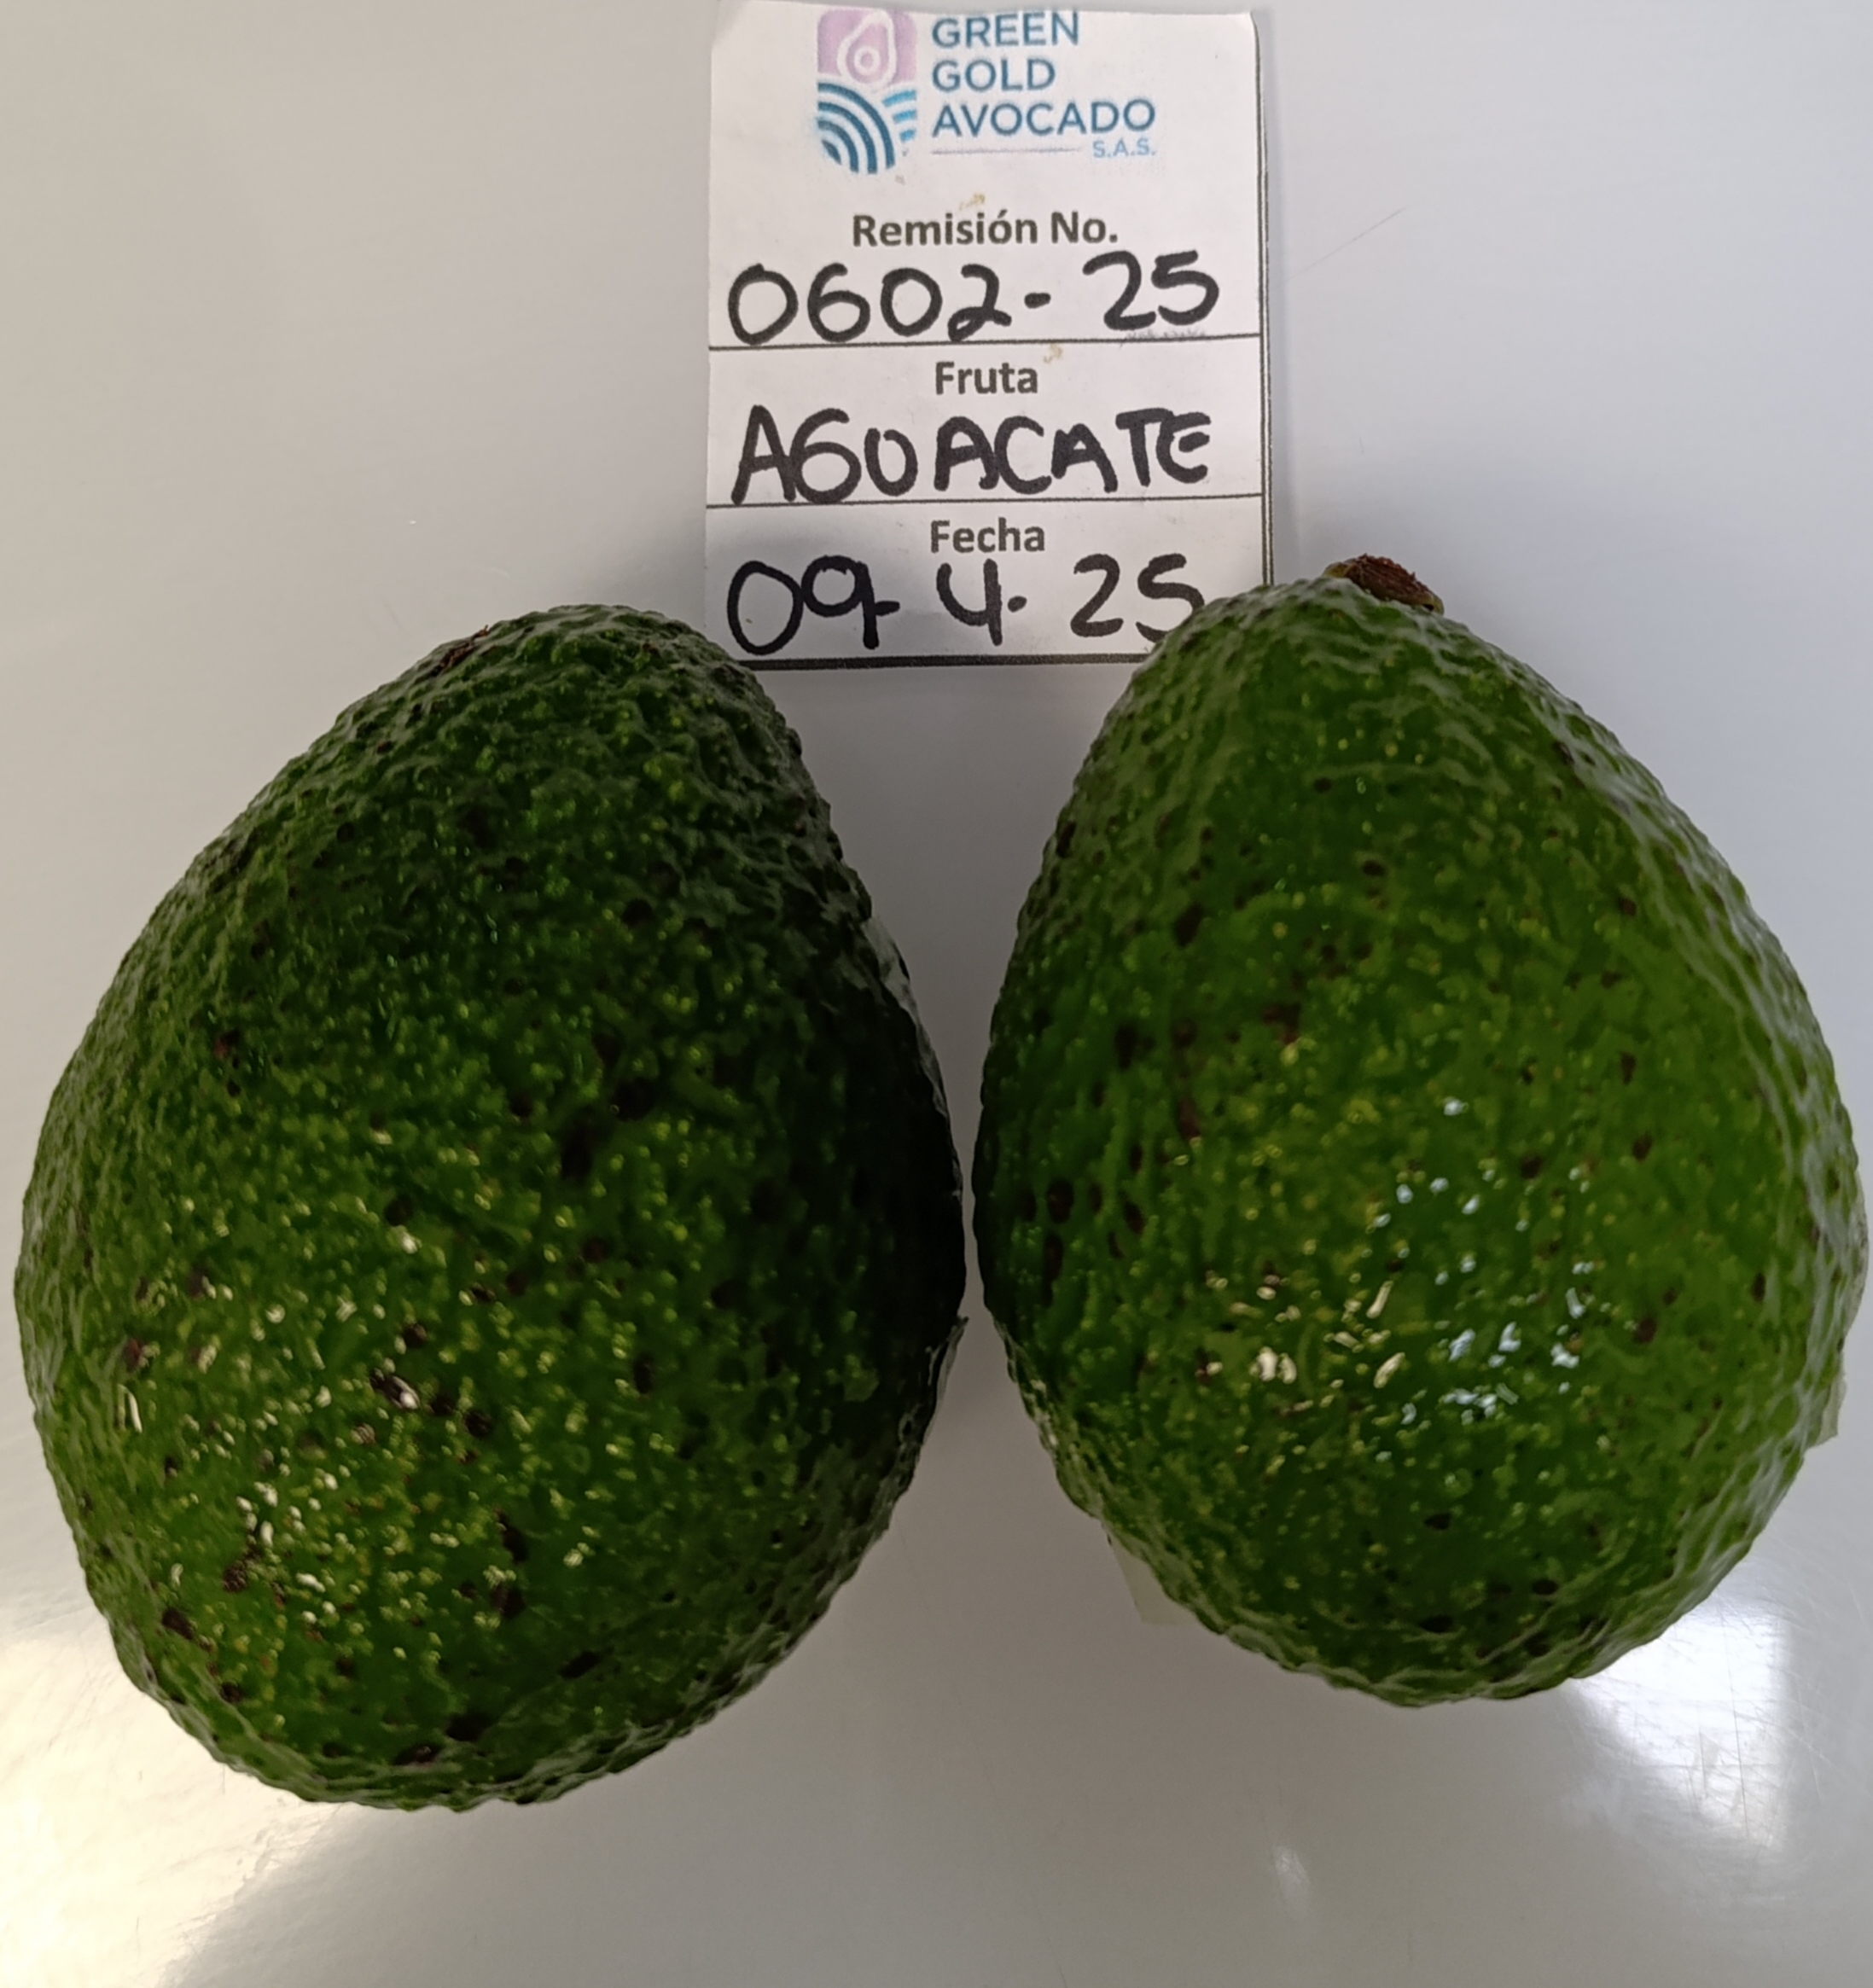 GREEN
GOLD
AVOCADO
S.A.S.
Remisión No.
0602-25
Fruta
AGUACATE
Fecha
09-4-25